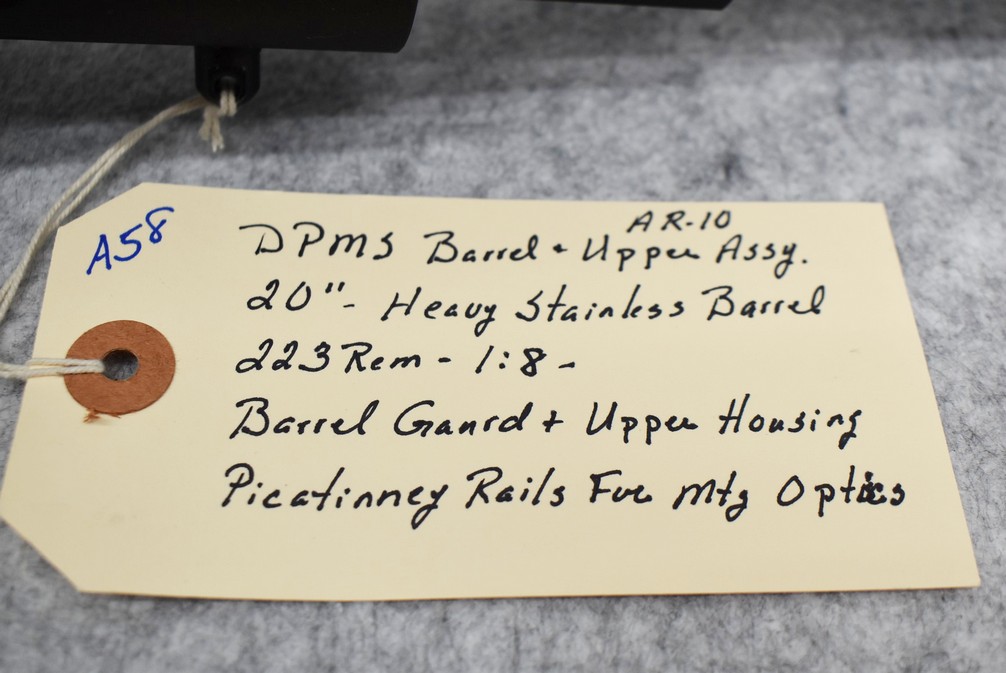 A58
AR-10
DPMS Barrel + Upper Assy.
20"- Heavy Stainless Barrel
223 Rem - 1:8 -
Barrel Ganrd + Upper Housing
Picatinney Rails For Mtg Optics